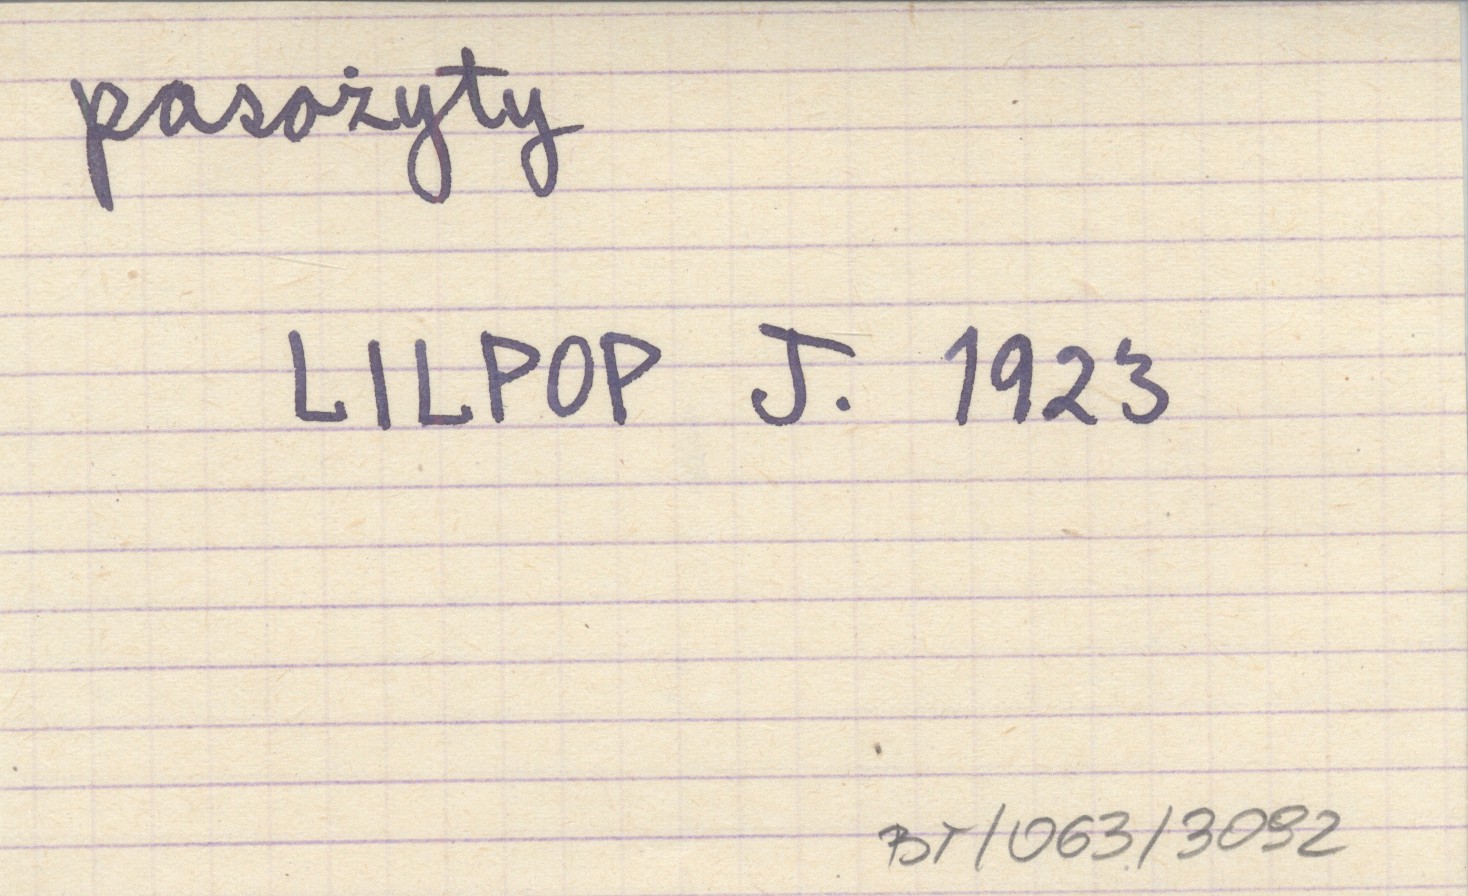 pasożyty
LILPOP J. 1923
BT/063/3092